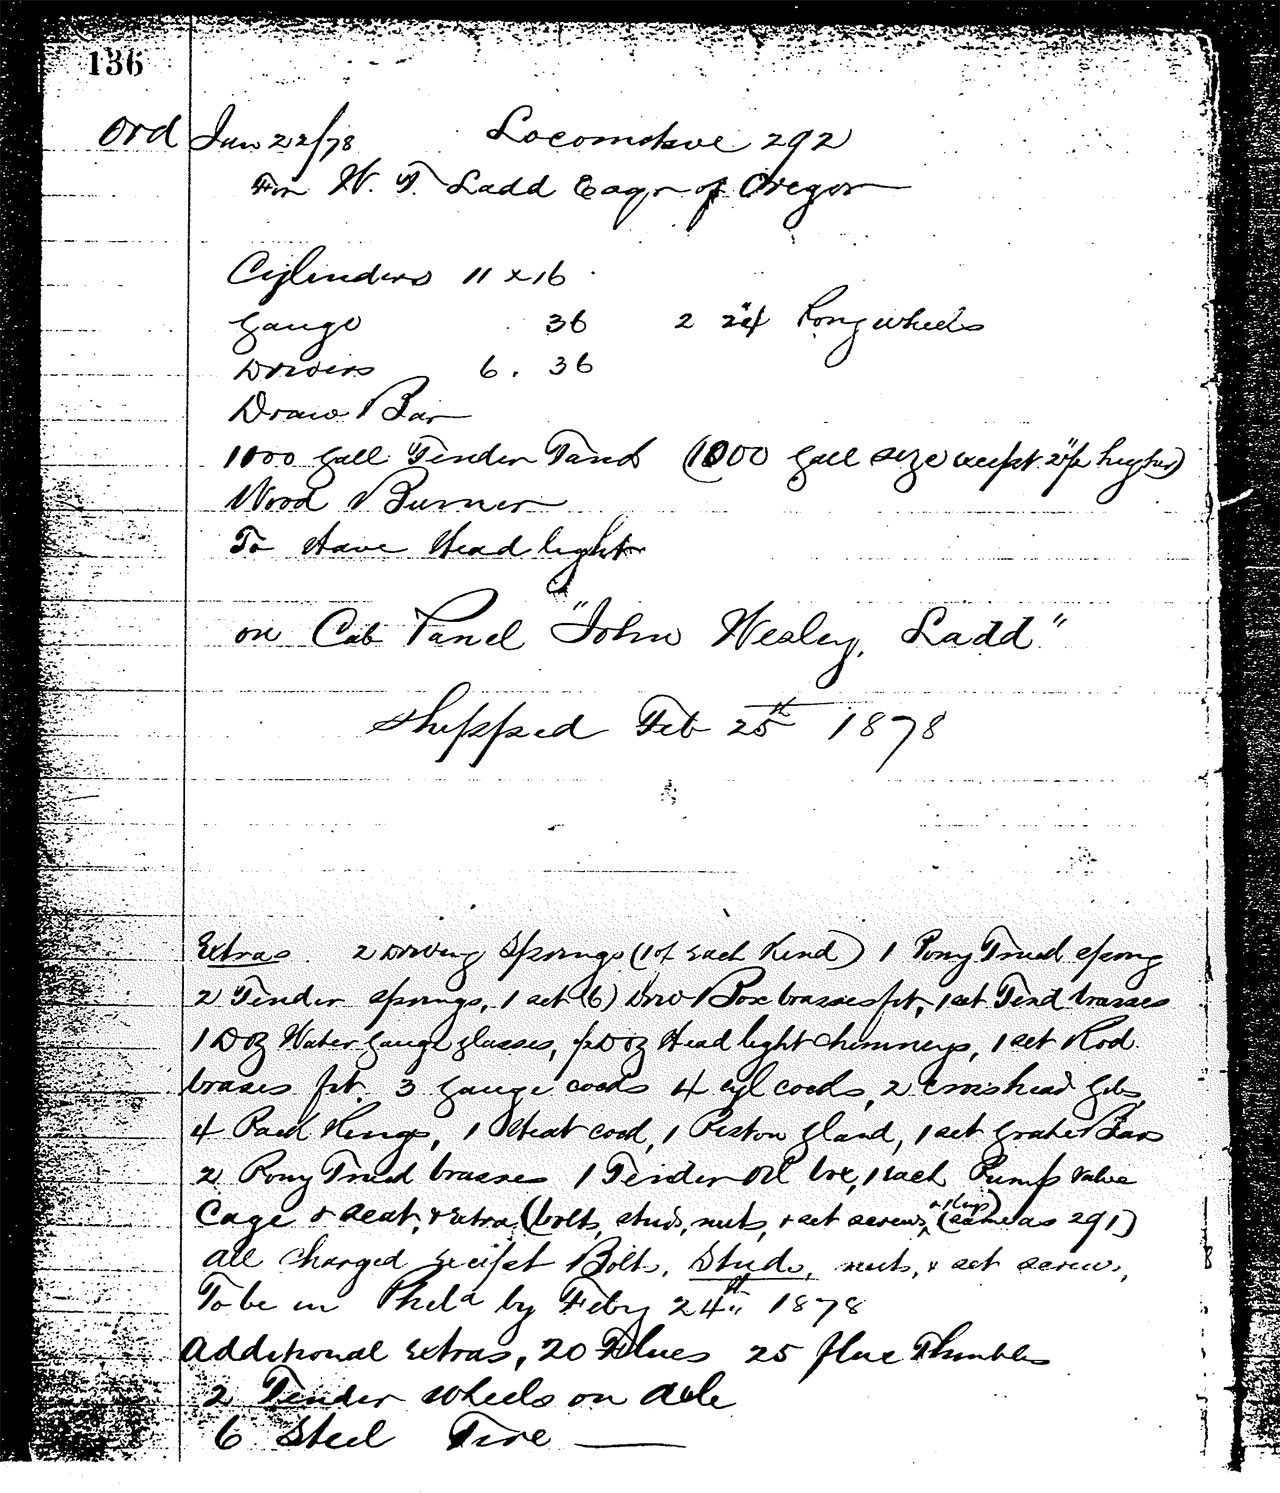 136
Ord Jan 22/78 Locomotive 292
For W. S. Ladd Esqr of Oregon
Cylinders 11 x 16
Gauge 36 2 24" Pony wheels
Drivers 6. 36
Draw Bar
1000 Gall Tender Tank (1000 Gall size except 2" higher)
Wood Burner
To Have Head light
on Cab Panel "John Wesley, Ladd"
Shipped Feb 25th 1878
Extras 2 Driving Springs (1 of Each Kind) 1 Pony Truck spring
2 Tender springs, 1 set (6) Driv Box brasses fit, 1 set Tend brasses
1 Doz Water Gauge glasses, ½ Doz Head light chimneys, 1 set Rod
brases fit. 3 Gauge cocks 4 cyl cocks, 2 crosshead Gibs,
4 Pack Rings, 1 Heat cock, 1 Piston Gland, 1 set Grate Bars
2 Pony Truck brasses 1 Tender Oil box, 1 each Pump valve
Cage & seat, & Extra (bolts, studs, nuts, & set screws) (same as 291)
all charged Except Bolts, Studs, nuts, & set screws,
To be in Phila by Feby 24th 1878
Additional Extras, 20 Flues 25 flue Thimbles
2 Tender wheels on Axle
6 Steel Tire